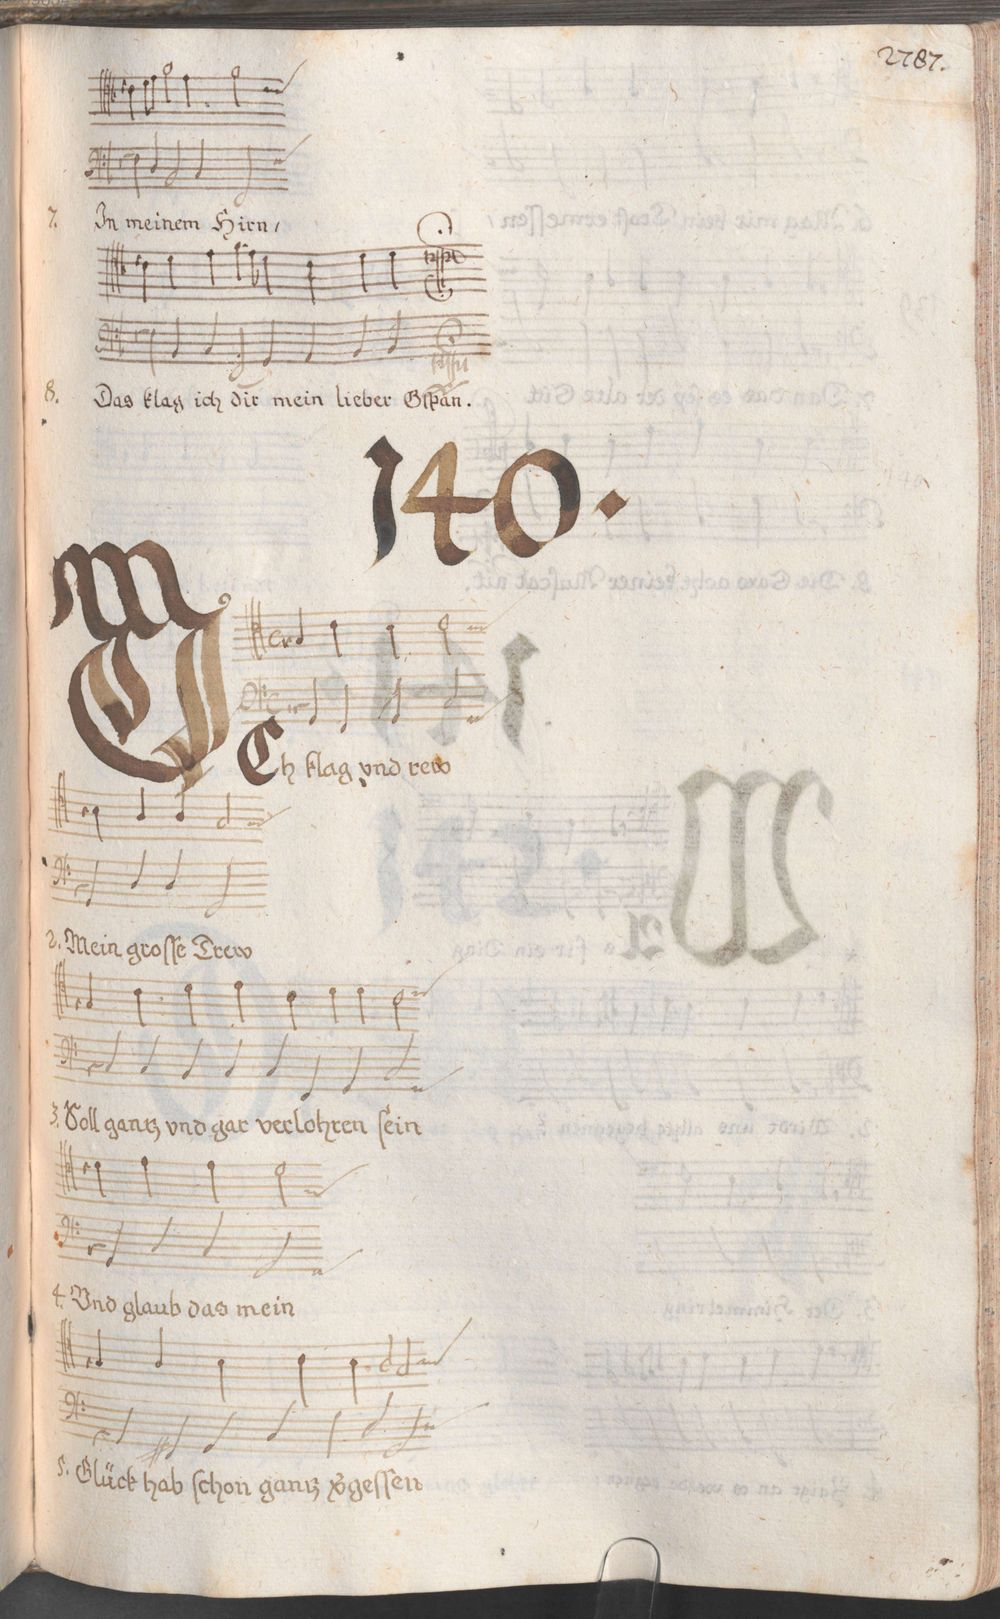 2787.
7. In meinem Hirn/
8. Das klag ich dir mein lieber Gspan.
140.
M
ICh klag vnd rew
2. Mein grosse Trew
3. Soll gantz vnd gar verlohren sein
4. Vnd glaub das mein
5. Glück hab schon gantz vgessen